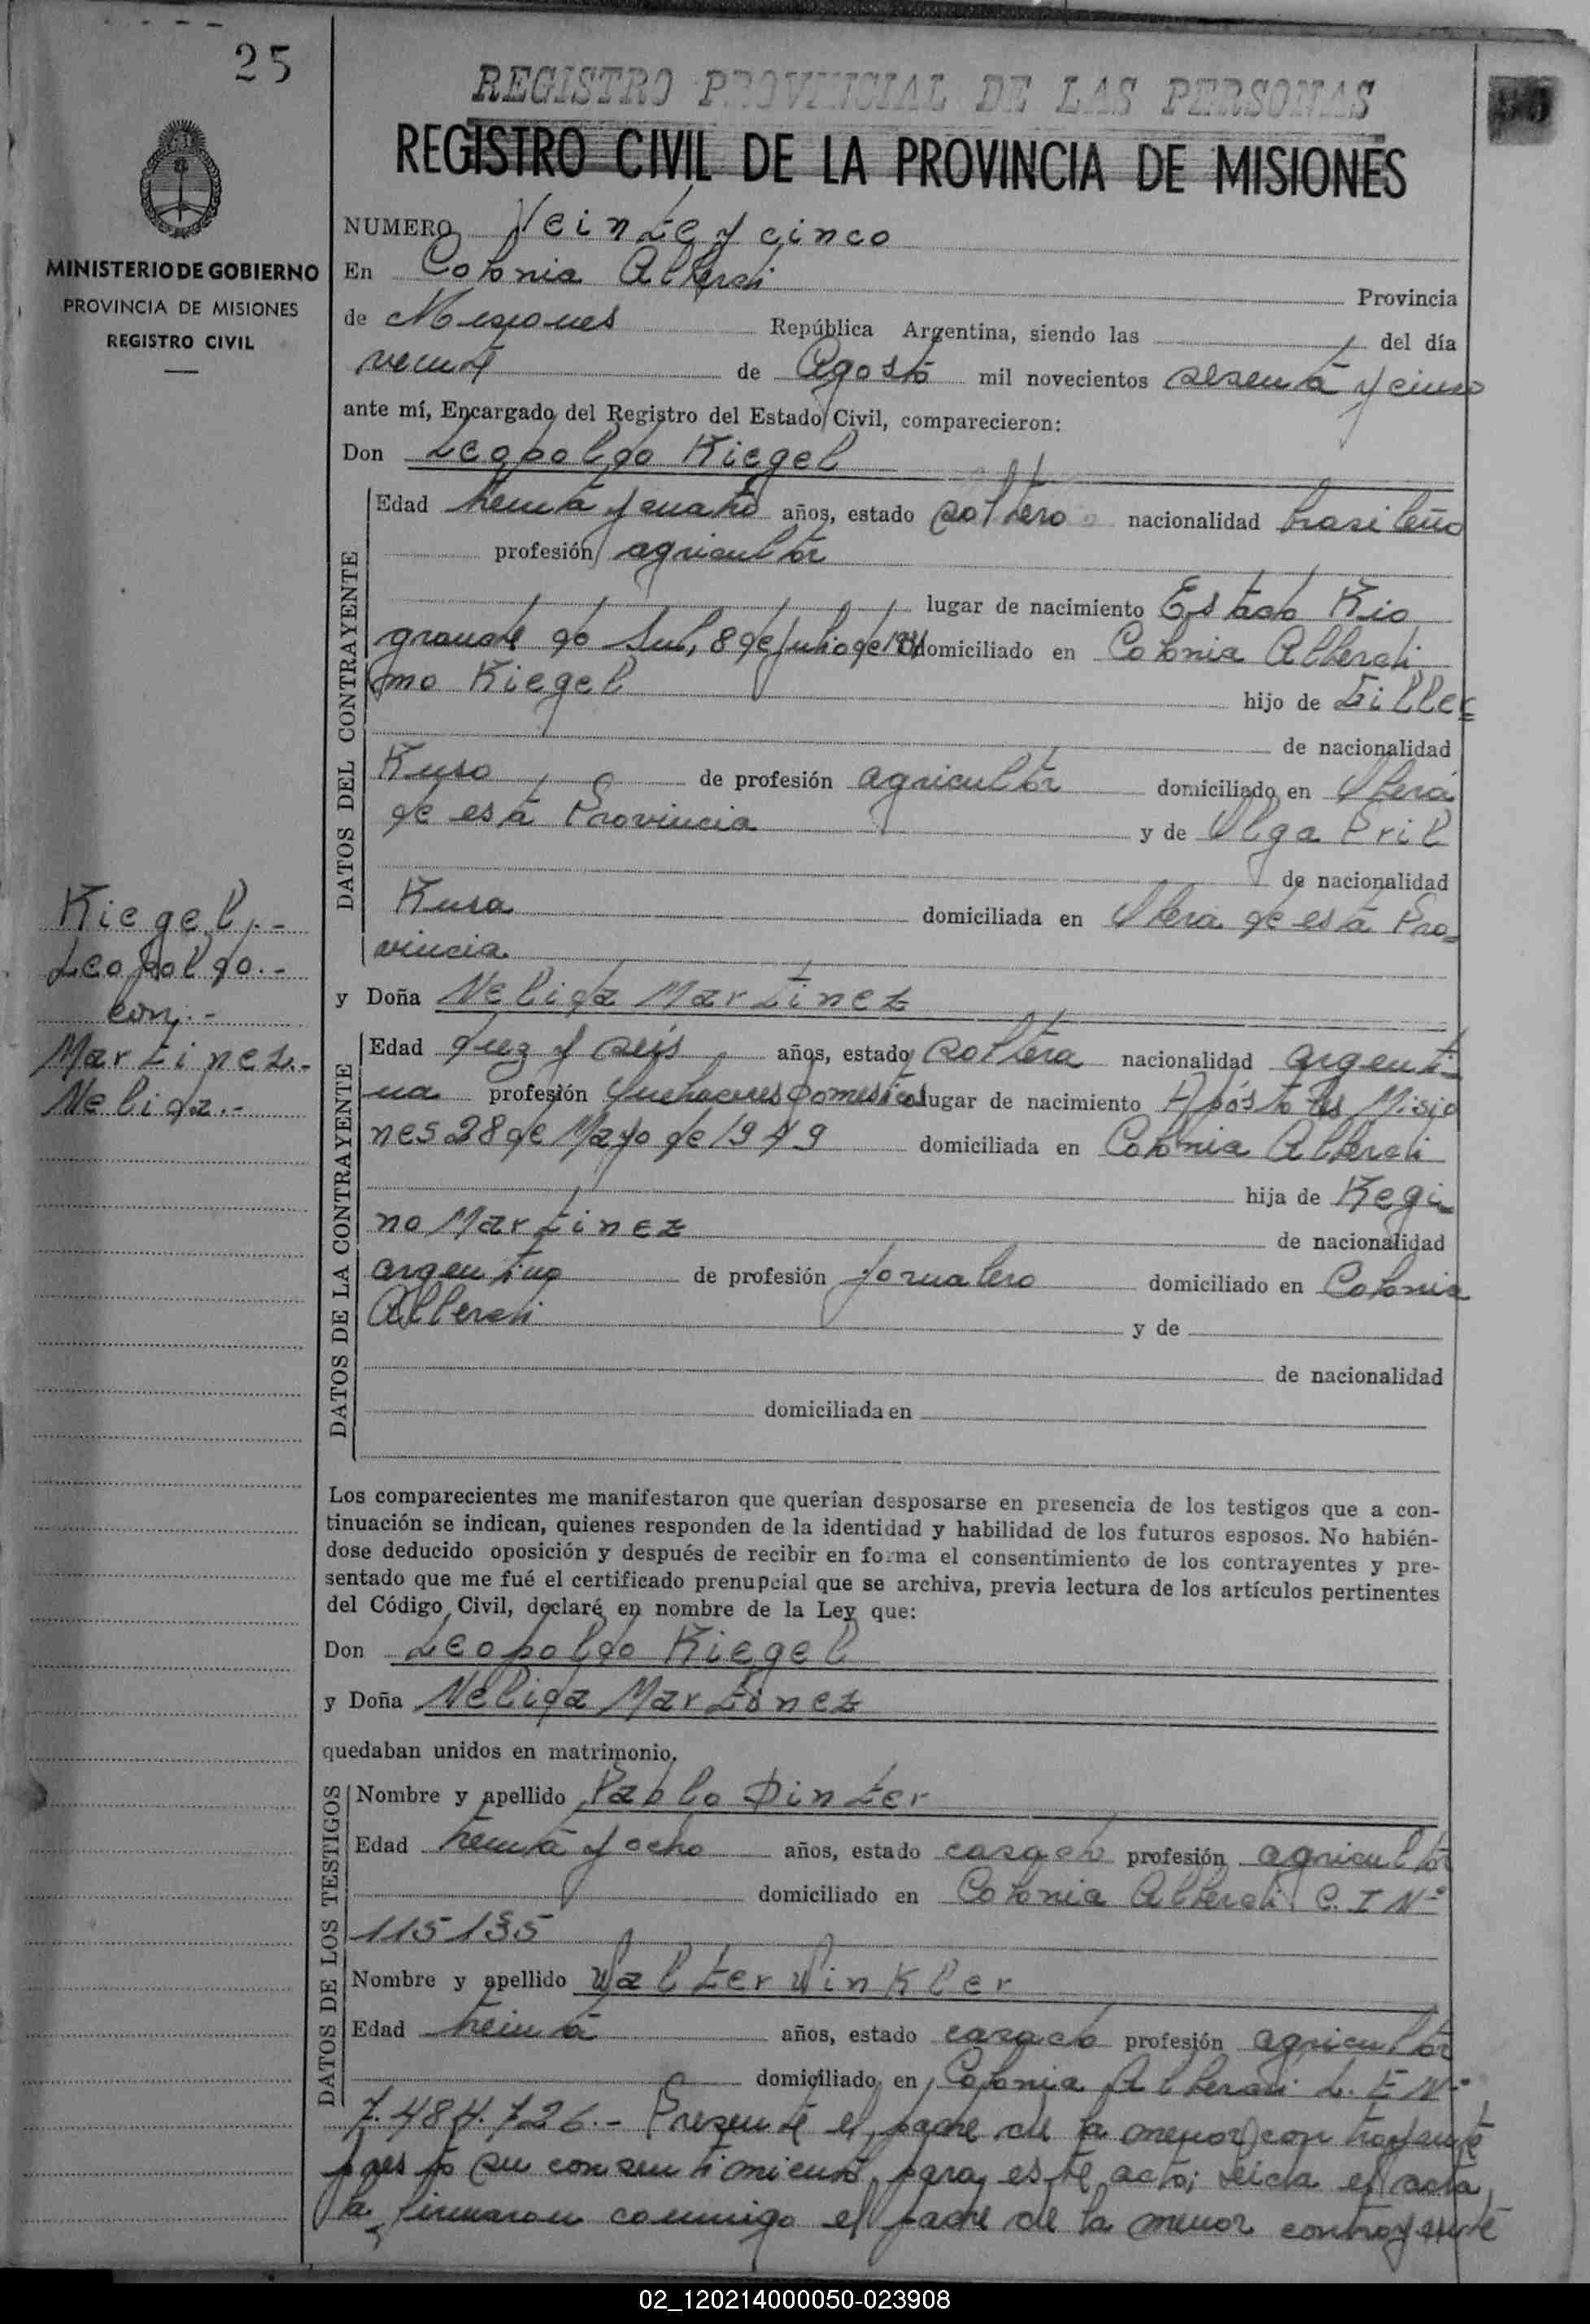 25
REGISTRO PROVINCIAL DE LAS PERSONAS
REGISTRO CIVIL DE LA PROVINCIA DE MISIONES
MINISTERIO DE GOBIERNO
PROVINCIA DE MISIONES
REGISTRO CIVIL
NUMERO Veinte y cinco
En Colonia Alberdi Provincia
de Misiones República Argentina, siendo las del día
veinte de Agosto mil novecientos sesenta y cinco
ante mí, Encargado del Registro del Estado Civil, comparecieron:
Don Leopoldo Kiegel
DATOS DEL CONTRAYENTE
Edad treinta y cuatro años, estado soltero nacionalidad brasileño
profesión agricultor
lugar de nacimiento Estado Rio
grande do Sul, 8 de Julio de 1931 domiciliado en Colonia Alberdi
mo Kiegel hijo de Guiller
de nacionalidad
Ruso de profesión agricultor domiciliado en Oberá
de esta Provincia y de Olga Pril
de nacionalidad
Rusa domiciliada en Oberá de esta Pro=
vincia.
Kiegel.-
Leopoldo.-
con.-
Martinez.-
Nelida.-
y Doña Nelida Martinez
DATOS DE LA CONTRAYENTE
Edad diez y seis años, estado soltera nacionalidad argenti=
na profesión Quehaceres Domesticos lugar de nacimiento Apóstoles Misio
nes 28 de Mayo de 1949 domiciliada en Colonia Alberdi
hija de Regi
no Martinez de nacionalidad
argentino de profesión Jornalero domiciliado en Colonia
Alberdi y de
de nacionalidad
domiciliada en
Los comparecientes me manifestaron que querían desposarse en presencia de los testigos que a con-
tinuación se indican, quienes responden de la identidad y habilidad de los futuros esposos. No habién-
dose deducido oposición y después de recibir en forma el consentimiento de los contrayentes y pre-
sentado que me fué el certificado prenupcial que se archiva, previa lectura de los artículos pertinentes
del Código Civil, declaré en nombre de la Ley que:
Don Leopoldo Kiegel
y Doña Nelida Martinez
quedaban unidos en matrimonio.
DATOS DE LOS TESTIGOS
Nombre y apellido Pablo Dinter
Edad treinta y ocho años, estado casado profesión agricultor
domiciliado en Colonia Alberdi. C. I Nº
115135
Nombre y apellido Walter Winkler
Edad treinta años, estado casado profesión agricultor
domiciliado en Colonia Alberdi. L. E Nº
7.484.726.- Presente el padre de la menor contrayente
presto su consentimiento para este acto; leida el acta,
la firmaron conmigo el padre de la menor contrayente
02_120214000050-023908